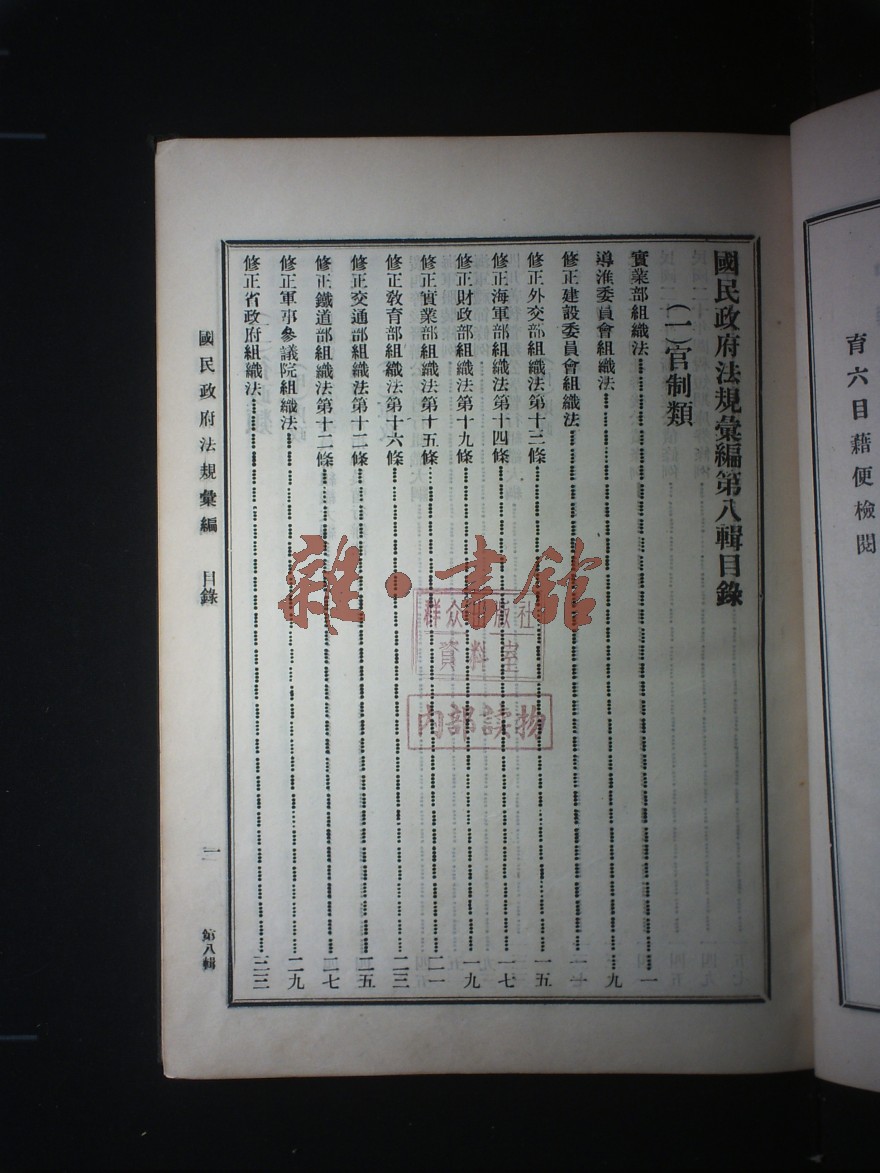 國民政府法規彙編第八輯目錄
(一)官制類
實業部組織法……一
導淮委員會組織法……九
修正建設委員會組織法……一一
修正外交部組織法第十三條……一五
修正海軍部組織法第十四條……一七
修正財政部組織法第十九條……一九
修正實業部組織法第十五條……二一
修正教育部組織法第十六條……二三
修正交通部組織法第十二條……二五
修正鐵道部組織法第十二條……二七
修正軍事參議院組織法……二九
修正省政府組織法……三三
國民政府法規彙編 目錄
第八輯
育六目藉便檢閱
雜·書館
群众出版社
資料室
内部读物